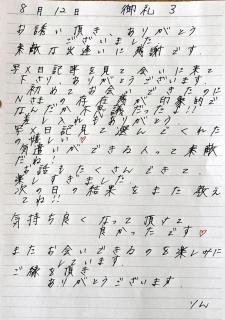 8月12日 御礼 3
お誘い頂き、ありがとう
ございました
素敵な出逢いに感謝です。
写メ日記等を見て会いに来て
下さり、ありがとうございます。
初めてお会いできたのに
Nさまの存在感が印象的で
なんだか不思議だったよ!!
差し入れもありがとう
写メ日記見て選んでくれた
の嬉しい♡
気遣いができる人って素敵
だね!
お話もたくさんできて
楽しすぎました
次の日の結果をまた教え
てね!!
気持ち良くなって頂けて
良かったです♡
またお会いできるのを楽しみに
しています
ご縁を頂き
ありがとうございます